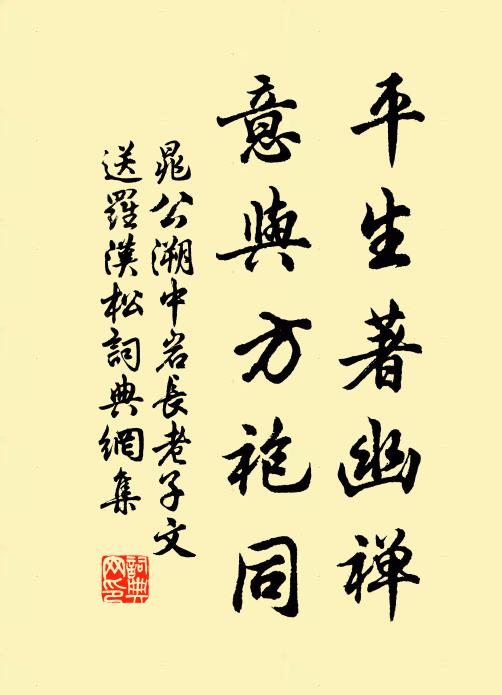 平生著幽禅
意與方袍同
晁公溯中岩長老子文
送羅漢松詞典網集
詞典
网印